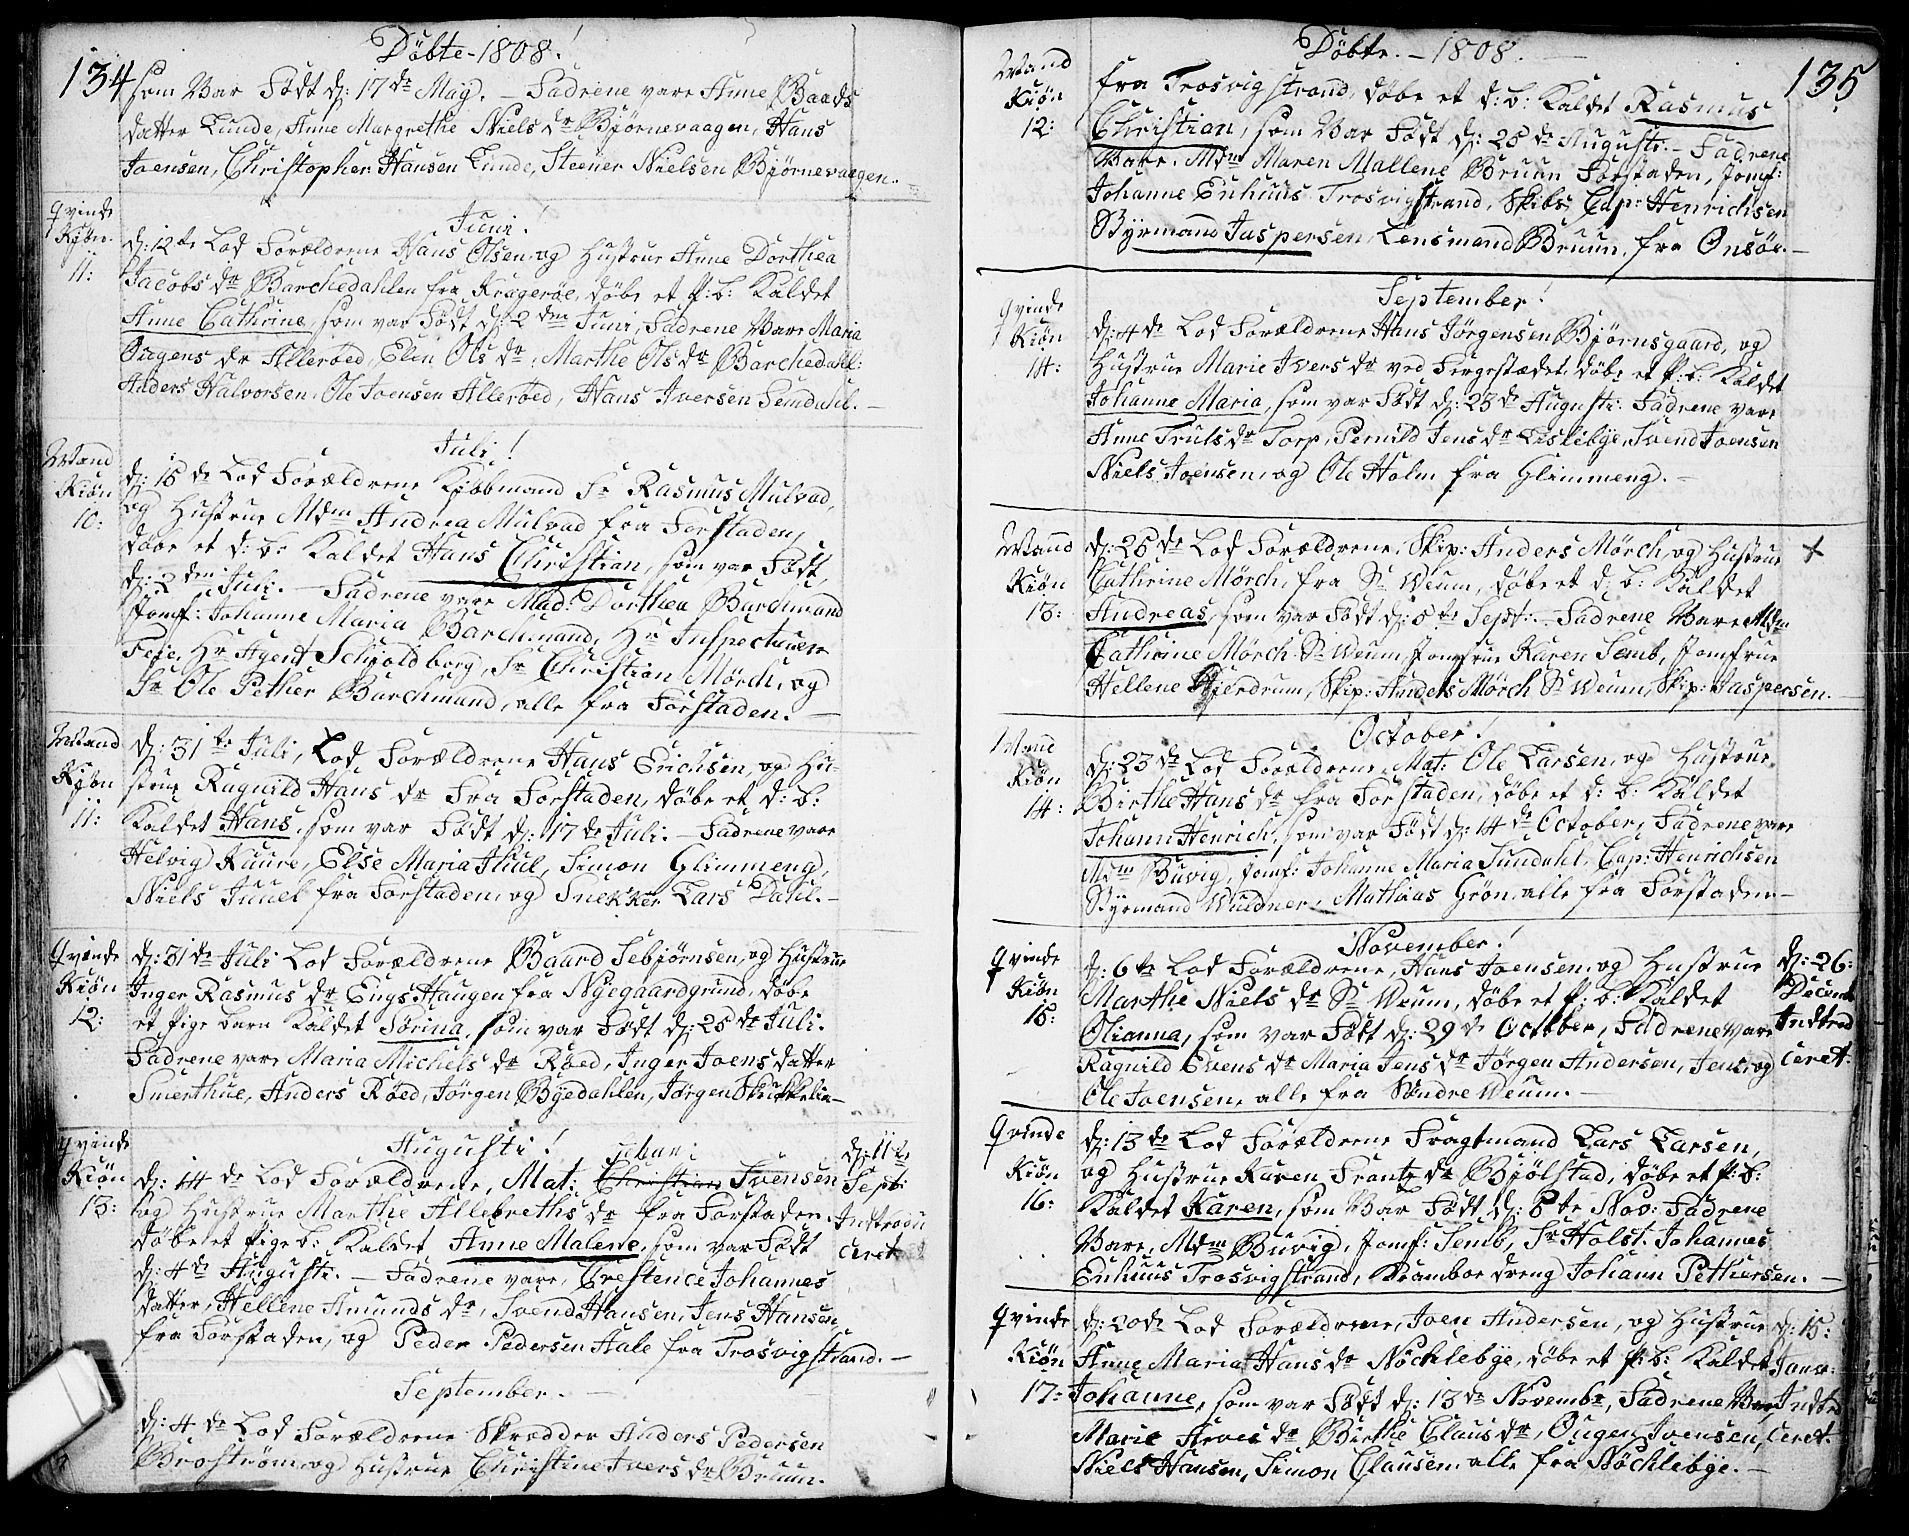 134
Döbte - 1808!
som Var Födt d: 17de May. - Fadrene vare Anne Baards
datter Lunde, Anne Margrethe Niels dr Bjørnevaagen, Hans
Joensen, Christopher Hansen Lunde, Steener Nielsen Bjørnevaagen.
Juni!
Qvinde
Kiøn.
11:
d: 12te Lod Forældrene Hans Olsen og Hustrue Anne Dorthea
Jacobs dr Barchedahlen fra Kragerøe, døbe et P: b: Kaldet
Anne Cathrine, som var Födt d: 2den Juni, Fadrene Vare Maria
Ougens dr Allerøed, Elin Ols dr, Marthe Ols dr Barchedahl:
Anders Halvorsen, Ole Joensen Allerøed, Hans Iversen Semdahl. -
Juli!
Mand
Kiøn
10:
d: 15de Lod Forældrene Kiöbmand Sr Rasmus Mulvad,
og Hustrue Mdm Andrea Mulvad fra Forstaden,
döbe et d: b: Kaldet Hans Christian, som var Födt,
d: 2den Juli. - Fadrene vare Mad: Dorthea Burchmand
Jomf: Johanne Maria Barchmand, Hr Inspecteur
Feie, Hr Agent Schioldborg, Sr Christian Mörch, og
Sr Ole Pether Barchmand, alle fra Forstaden. -
Mand
Kiøn
11:
d: 31te Juli, Lod Forældrene Hans Erichsen, og Hu-
strue Ragnild Hans dr Fra Forstaden, döbe et d: b:
Kaldet Hans, som var Födt d: 17de Juli. - Fadrene vare
Helvig Kaure, Else Maria Juul, Simon Glimmeng,
Niels Juuel fra Forstaden, og Snekker Lars Dahl. -
Qvinde
Kiøn
12:
d: 31de Juli Lod Forældrene Baard Sebjørnsen, og Hustrue
Inger Rasmus dr EngsHaugen fra Nyegaardgrund, døbe
et Pige barn Kaldet Sörina, som var Födt d: 25de Juli.
Fadrene vare Maria Michels dr Røed, Inger Joens datter
Smerthue, Anders Röed, Jörgen Byedahlen, Jörgen
Augusti!
Qvinde
Kiøn
13:
d: 14de Lod Forældrene, Mat: Christian Svensen
og Hustrue Marthe Allebreths dr fra Forstaden
döbe et Pige b: Kaldet Anne Malene, som var Födt
d: 4de Augusti. - Fadrene vare, Crestence Johannes
datter, Hellene Amunds dr, Svend Hansen, Jens Hansen
fra Forstaden, og Peder Pedersen Hale fra Trosvigstrand. -
d: 11te
Sept:
Indtrodu
ceret
September. -
d: 4de Lod Forældrene Skrædder Anders Pedersen
Broström, og Hustrue Christine Ivers dr Bruun.
135
Döbte. - 1808. -
Mand
Kiøn
12:
fra Trosvigstrand, döbe et d: b: Kaldet Rasmus
Christian, som Var Födt d: 25de Augusti. - Fadrene
Vare. Mdm Maren Mallene Bruun Forstaden, Jomf:
Johanne Enhuus Trosvigstrand, Skibs Cap: Henrichsen
Styrmand Jaspersen, Lensmand Bruun, fra Onsöe. -
September!
Qvinde
Kiøn
14:
d: 4de Lod Forældrene Hans Jörgensen Bjørnsgaard, og
Hustrue Marie Ivers dr ved Fergestædet döbe et P: b: Kaldet
Johanne Maria, som var Födt d: 23de Augusti. Fadrene vare
Anne Truls dr Torp, Pernild Jens dr Lislebye, Svend Joensen
Niels Joensen, og Ole Holm fra Glimmeng. -
Mand
Kiøn
13:
d: 25de Lod Forældrene, Skip: Anders Mörch, og Hustrue
Cathrine Mörch, fra Sr Weum, döbe et d: b: Kaldet
Andreas, som var Födt d: 5te Sept: - Fadrene Vare Mdm
Cathrine Mörch Sr Weum, Jomfrue Karen Semb, Jomfrue
Hellene Gjerdrum, Skip: Anders Mörch Sr Weum, Skip: Jaspersen. -
October!
Mand
Kiøn
14:
d: 23de Lod Forældrene, Mat: Ole Larsen, og Hustrue
Birthe Hans dr fra Forstaden, döbe et d: b: Kaldet
Johann Henrich, som var Födt d: 14de October, Fadrene vare
Mdm Buvig, Jomf: Johanne Maria Sundahl, Cap: Henrichsen
Styrmand Wuldner, Mathias Grön, alle fra Forstaden -
November!
Qvinde
Kiøn
15:
d: 6te Lod Forældrene, Hans Joensen, og Hustrue
Marthe Niels dr Sr Weum, döbe et P: b: Kaldet
Olianna, som var Födt d: 29de October, Fadrene vare
Ragnild Evens dr Maria Jens dr Jörgen Andersen, Jens, og
Ole Joensen, alle fra Söndre Weum. -
d: 26:
Decemb
Indtrod
ceret:
Qvinde
Kiøn
16:
d: 13de Lod Forældrene Fragtmand Lars Larsen,
og Hustrue Karen Frantz dr Bjölstad, döbe et P: b:
Kaldet Karen, som Var Födt d: 5te Nov: Fadrene
Vare, Mdm Buvig, Jomf: Semb, Sr Holst. Johannes
Enhuus Trosvigstrand, Kramboe dreng Johann Pethersen. -
Qvinde
Kiøn
17:
d: 20de Lod Forældrene, Joen Andersen, og Hustrue
Anne Maria Hans dr Nöchlebye, döbe et P: b: Kaldet
Johanne, som var Födt d: 13de Novembr, Fadrene Vare
Marie Arves dr Birthe Claus dr, Ougen Svensen,
Niels Hansen, Simon Clausen, alle fra Nöchlebye. -
d: 15:
Janv:
Indtro
ceret.